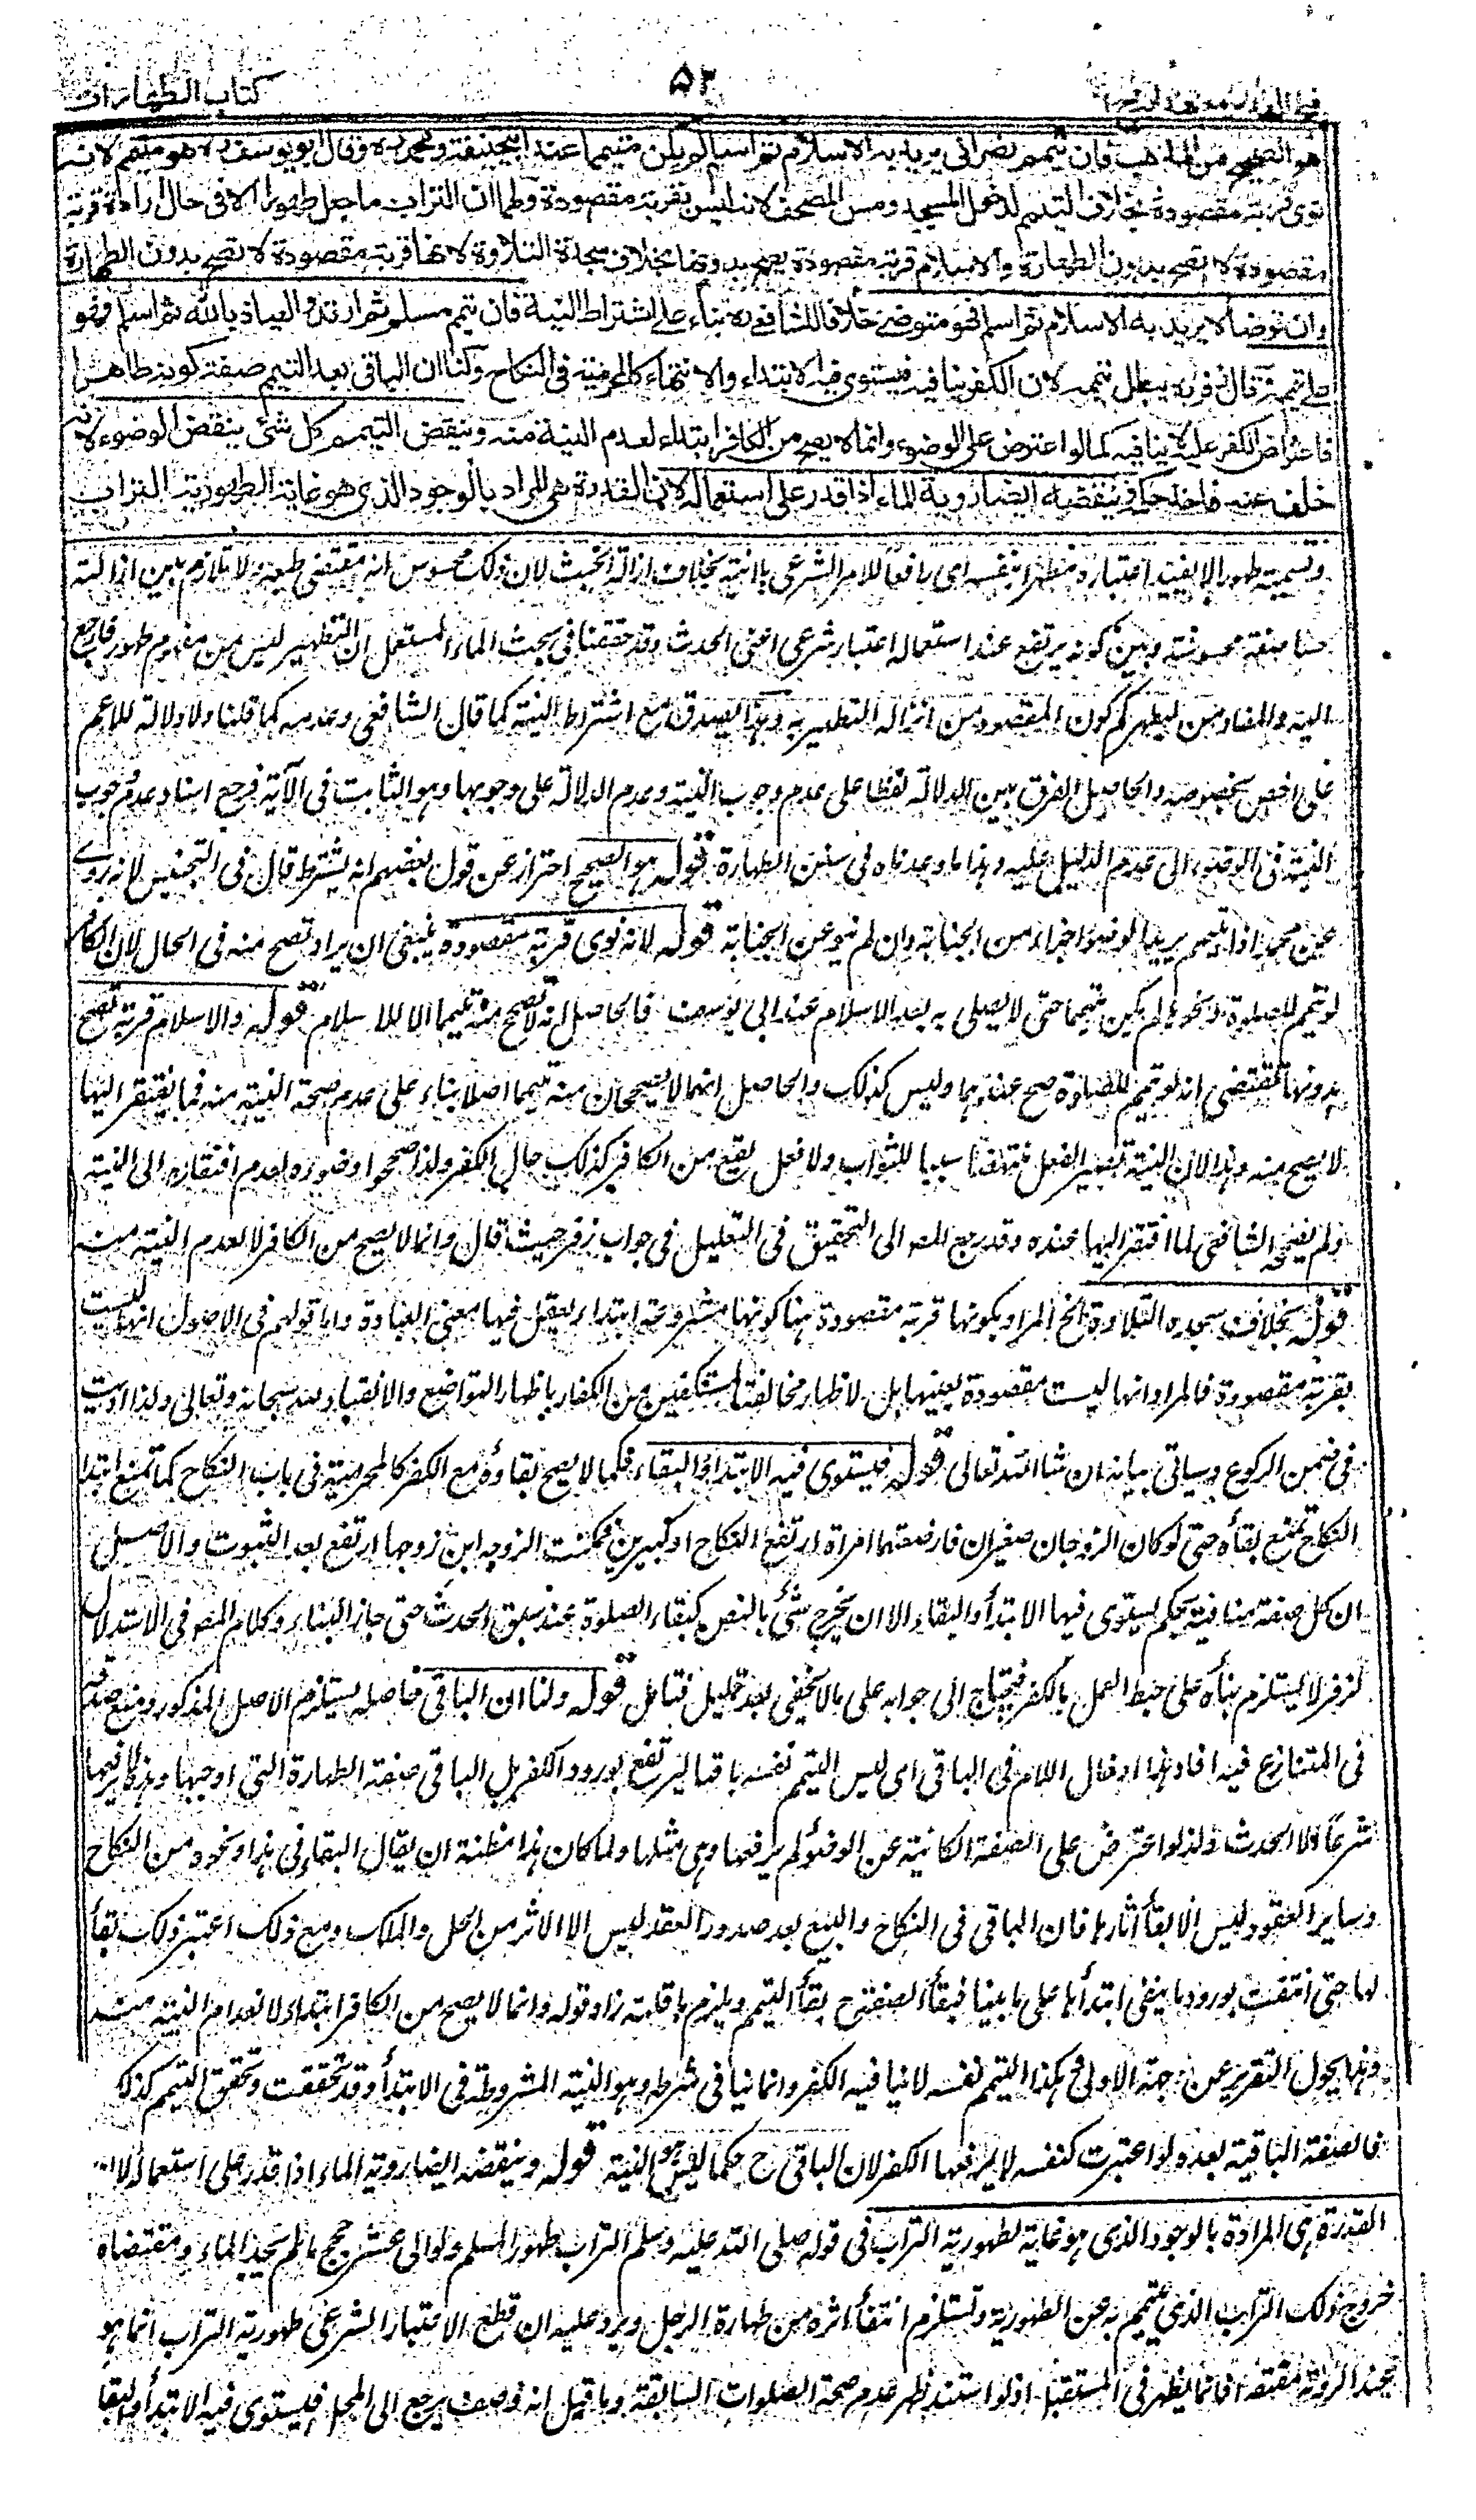 كتاب الطهارات
۵۳
فتح القدير مع الهداية
هو الصحيح من المذهب فان تيمم نصراني يريد به الاسلام ثم اسلم لم يكن متيمما عند ابيحنيفة ومحمد ره وقال ابو يوسف ره هو متيمم لانه
نوى قربة مقصودة بخلاف التيمم لدخول المسجد ومس المصحف لانه ليس بقربة مقصودة ولهما ان التراب ما جعل طهورا الا في حال ارادة قربة
مقصودة لا تصح بدون الطهارة والاسلام قربة مقصودة يصح بدونها بخلاف سجدة التلاوة لانها قربة مقصودة لا تصح بدون الطهارة
وان توضأ لا يريد به الاسلام ثم اسلم فهو متوضئ خلافا للشافعي ره بناء على اشتراط النية فان تيمم مسلم ثم ارتد والعياذ بالله ثم اسلم فهو
على تيممه وقال زفر ره يبطل تيممه لان الكفر ينافيه فيستوي فيه الابتداء والانتهاء كالمحرمية في النكاح ولنا ان الباقي بعد التيمم صفة كونه طاهرا
فاعتراض الكفر عليه لا ينافيه كما لو اعترض على الوضوء وانما لا يصح من الكافر ابتداء لعدم النية منه وينقض التيمم كل شئ ينقض الوضوء لانه
خلف عنه فاخذ حكمه وينقضه ايضا روية الماء اذا قدر على استعماله لان القدرة هي المراد بالوجود الذي هو غاية الطهورية التراب
وتسميته طهورا لا يفيد اعتباره مطهرا بنفسه اى رافعا للامر الشرعي بلا نية بخلاف ازالة الخبث لان ذلك محسوس انه مقتضى طبعه ولا تلازم بين ازالته
حسا صفة محسوسة وبين كونه يرتفع عند استعماله اعتبار شرعي اعنى الحدث وقد حققنا في بحث الماء المستعمل ان التطهير ليس من مفهوم طهور فارجع
اليه والمفاد من ليطهركم كون المقصود من انزاله التطهير به وهذا يصدق مع اشتراط النية كما قال الشافعي وعدمه كما قلنا ولا دلالة للاعم
على اخص بخصوصه والحاصل الفرق بين الدلالة لفظا على عدم وجوب النية وعدم الدلالة على وجوبها وهو الثابت في الآية فرجع اسناد عدم وجوب
النية في الوضوء الى عدم الدليل عليه وهذا ما وعدناه في سنن الطهارة قوله هو الصحيح احتراز عن قول بعضهم انه يشترط قال في التجنيس لانه روى
عن محمد اذا تيمم يريد الوضوء اجزاه من الجنابة وان لم ينو عن الجنابة قوله لانه نوى قربة مقصودة ينبغي ان يراد تصح منه في الحال لان الكافر
لو تيمم للصلوة ونحوها لم يكن متيمما حتى لا يصلى به بعد الاسلام عند ابى يوسف فالحاصل انه لا تصح منه تيمما الا للاسلام قوله والاسلام قربة تصح
بدونها تقتضى انه لو تيمم للصلوة صح عندهما وليس كذلك والحاصل انهما لا يصححان منه تيمما اصلا بناء على عدم صحة النية منه فما يفتقر اليها
لا يصح منه وهذا لان النية تصير الفعل منتهضا سببا للثواب ولا فعل يقع من الكافر كذلك حال الكفر ولذا صححوا وضوره لعدم افتقاره الى النية
ولم يصححه الشافعي لما افتقر اليها عنده وقد رجع المصو الى التحقيق في التعليل في جواب زفر حيث قال وانما لا يصح من الكافر لا لعدم النية منه
قوله بخلاف سجدة التلاوة الخ المراد بكونها قربة مقصودة هنا كونها مشروعة ابتداء يعقل فيها معنى العبادة واما قولهم في الاصول انها ليست
بقربة مقصودة فالمراد انها ليست مقصودة بعينها بل لاظهار مخالفة المستنكفين من الكفار باظهار التواضع والانقياد لعبد سبحانه وتعالى ولذا اديت
في ضمن الركوع وسياتي بيانه ان شاالله تعالى قوله فيستوى فيه الابتداء والبقاء فكما لا يصح بقاؤه مع الكفر كالمحرمية في باب النكاح كما تمنع ابتدا
النكاح تمنع بقاه حتى لو كان الزوجان صغيران فارضعتهما امراة ارتفع النكاح او كبيرين فمكنت الزوجه ابن زوجها ارتفع بعد الثبوت والاصل
ان كل صفة منافية بحكم يستوى فيها الابتدأ والبقاء الا ان يخرج شئ بالنص كبقاء الصلوة عند سبق الحدث حتى جاز البناء وكلام المصو في الاستدلال
لزفر لا يستلزم بنأه على حبط العمل بالكفر فيحتاج الى جوابه على ما لا يخفى بعد قليل فتامل قوله ولنا ان الباقي حاصله يستلزم الاصل المذكور ومنع صدقه
في المتنازع فيه افاد هذا ادخال اللام في الباقي اى ليس التيمم نفسه باقيا ليرتفع بورود الكفر بل الباقي صفة الطهارة التي اوجبها وهذا لا يرفعها
شرعا الا الحدث ولذا لو اعترض على الصفة الكائنة عن الوضوء لم يرفعها وهي مثلها ولما كان هذا مظنة ان يقال البقاء في هذا ونحوه من النكاح
وسائر العقود ليس الا بقأ آثارها فان الباقي في النكاح والبيع بعد صدور العقد ليس الا الاثر من الحل والملك ومع ذلك اعتبر ذلك بقأ
لها حتى انتفت بورود ما ينفي ابتدأها على ما بينا فبقأ الصفة ح بقأ التيمم ويلزم ما قلته زاد قوله وانما لا يصح من الكافر ابتداء لانعدام النية منه
وبهذا يحول التقرير عن وجهه الاول هكذا التيمم نفسه لا ينافيه الكفر وانما ينافي شرطه وهو النية المشروطة في الابتدأ وقد تحققت وتحقق التيمم كذلك
فالصفة الباقية بعده لو اعتبرت كنفسه لا يرفعها الكفر لان الباقي ح حكما ليس هو النية قوله وينقضه ايضا روية الماء اذا قدر على استعماله لان
القدرة هي المرادة بالوجود الذي هو غاية لطهورية التراب في قوله صلى الله عليه وسلم التراب طهور المسلم ولو الى عشر حجج ما لم يجد الماء ومقتضاه
خروج ذلك التراب الذي تيمم به عن الطهورية وتستلزم انتفأ اثره من طهارة الرجل ويرد عليه ان قطع الاعتبار الشرعي طهورية التراب انما هو
عند الروية مقتصرا فانما يظهر في المستقبل اذ لو استند ظهر عدم صحة الصلوات السابقة وما قيل انه وصف يرجع الى المحل فيستوى فيه الابتدأ والبقا